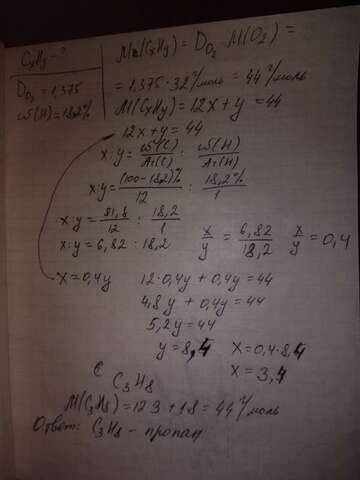 CxHy - ?
D O₂ = 1,375
ω(H) = 18,2%
M(CxHy) = D O₂ · M(O₂) =
= 1,375 · 32 г/моль = 44 г/моль
M(CxHy) = 12x + y = 44
12x + y = 44
x : y = ω(C)/Ar(C) : ω(H)/Ar(H)
x : y = (100-18,2)%/12 : 18,2%/1
x : y = 81,8/12 : 18,2/1
x : y = 6,82 : 18,2
x/y = 6,82/18,2
x/y = 0,4
x = 0,4y
12 · 0,4y + 0,4y = 44
4,8y + 0,4y = 44
5,2y = 44
y = 8,4
x = 0,4 · 8,4
x = 3,4
C C₃H₈
M(C₃H₈) = 12·3 + 1·8 = 44 г/моль
Ответ: C₃H₈ - пропан